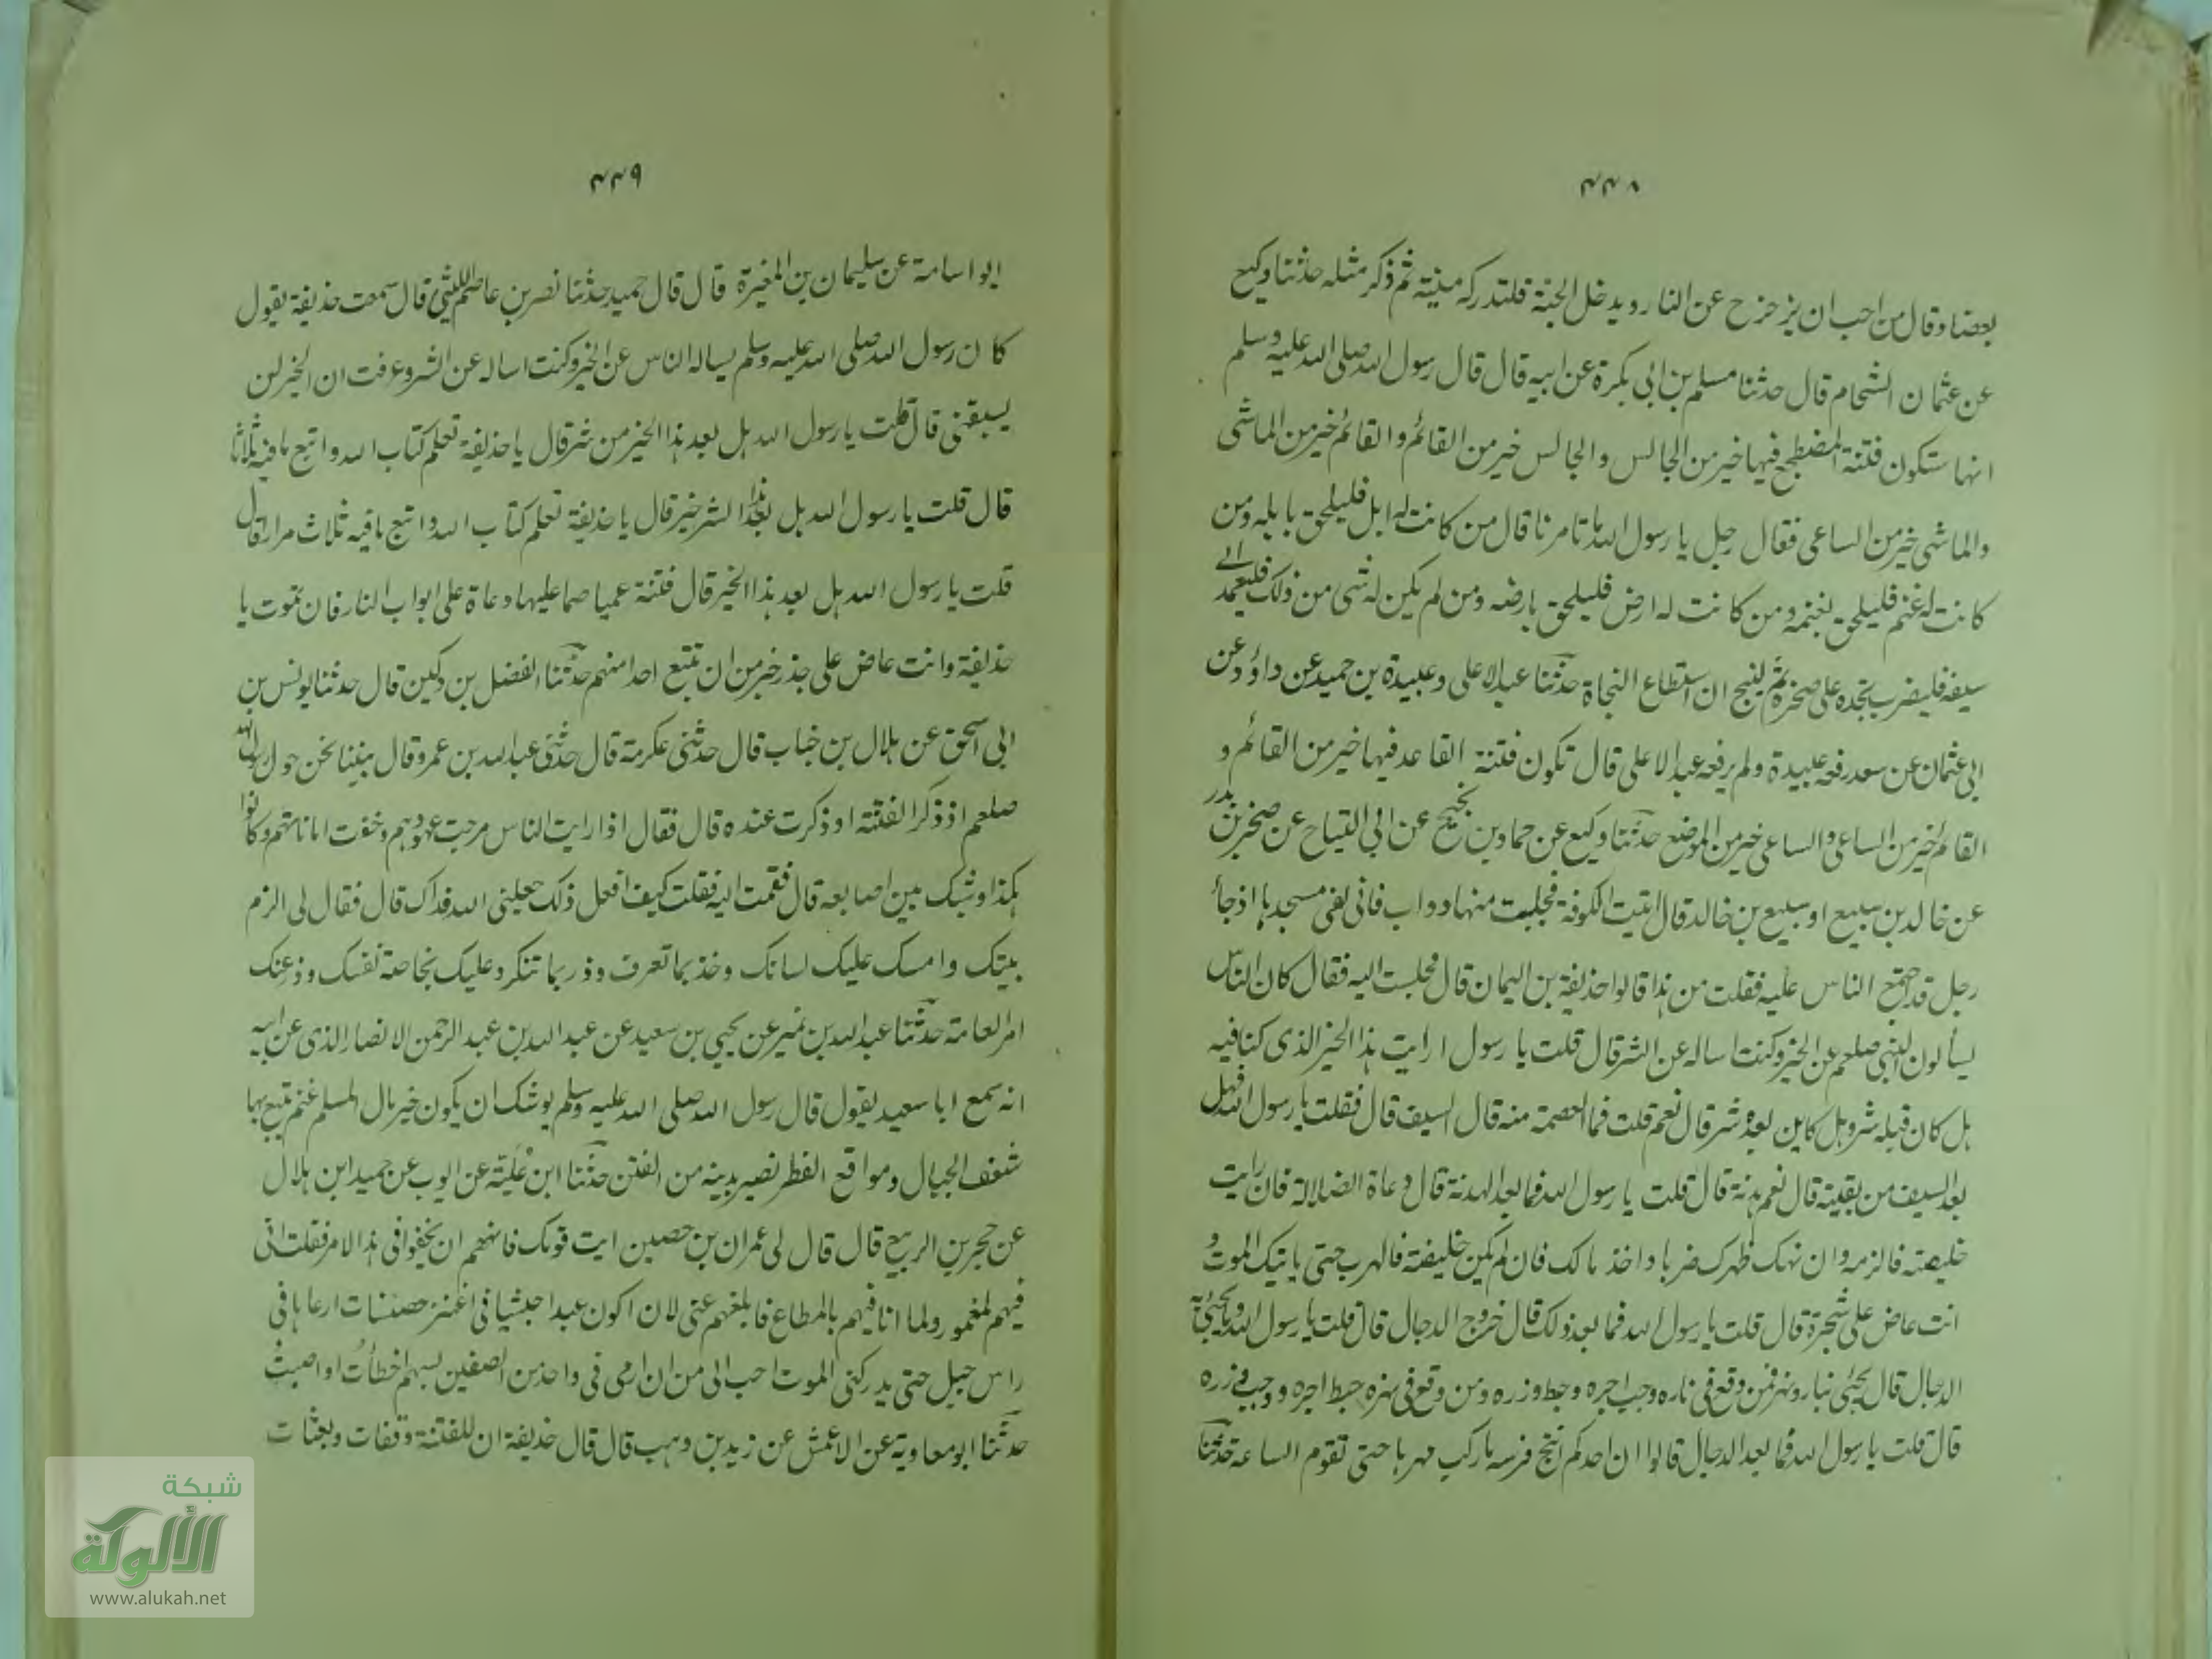 ٤٤٨
بعضا وقال من احب ان يزحزح عن النار ويدخل الجنة فلتدركه منيته ثم ذكر مثله حدثنا وكيع
عن عثمان الشحام قال حدثنا مسلم بن ابى بكرة عن ابيه قال قال رسول الله صلى الله عليه وسلم
انها ستكون فتنة المضطجع فيها خير من الجالس والجالس خير من القائم والقائم خير من الماشى
والماشى خير من الساعى فقال رجل يا رسول الله ما تامرنا قال من كانت له ابل فليلحق بابله ومن
كانت له غنم فليلحق بغنمه ومن كانت له ارض فليلحق بارضه ومن لم يكن له شى من ذلك فليعمد الى
سيفه فليضرب بحده على صخرة ثم لينج ان استطاع النجاة حدثنا عبد الاعلى وعبيدة بن حميد عن داؤد عن
ابى عثمان عن سعد رفعه عبيدة ولم يرفعه عبد الاعلى قال تكون فتنة القاعد فيها خير من القائم و
القائم خير من الساعى والساعى خير من الموضع حدثنا وكيع عن حماد بن نجيح عن ابى التياح عن صخر بن بدر
عن خالد بن سبيع او سبيع بن خالد قال اتيت الكوفة فجلبت منها دواب فانى لفى مسجدها اذ جاء
رجل قد اجتمع الناس عليه فقلت من هذا قالوا حذيفة بن اليمان قال فجلست اليه فقال كان الناس
يسألون النبى صلعم عن الخير وكنت اساله عن الشر قال قلت يا رسول ارايت هذا الخير الذى كنا فيه
هل كان قبله شر وهل كاين بعده شر قال نعم قلت فما العصمة منه قال السيف قال فقلت يا رسول الله فهل
بعد السيف من بقية قال نعم هدنة قال قلت يا رسول الله فما بعد الهدنة قال دعاة الضلالة فان رايت
خليفة فالزمه وان نهك ظهرك ضربا واخذ مالك فان لم يكن خليفة فالهرب حتى ياتيك الموت و
انت عاض على شجرة قال قلت يا رسول الله فما بعد ذلك قال خروج الدجال قال قلت يا رسول الله وما يجىء به
الدجال قال يجىء بنار ونهر فمن وقع فى ناره وجب اجره وحط وزره ومن وقع فى نهره حبط اجره ووجب وزره
قال قلت يا رسول الله فما بعد الدجال قالوا ان احدكم انتج فرسه ما ركب مهرها حتى تقوم الساعة حدثنا
٤٤٩
ابو اسامة عن سليمان بن المغيرة قال قال حميد حدثنا نصر بن عاصم الليثى قال سمعت حذيفة يقول
كان رسول الله صلى الله عليه وسلم يساله الناس عن الخير وكنت اساله عن الشر وعرفت ان الخير لن
يسبقنى قال قلت يا رسول الله هل بعد هذا الخير من شر قال يا حذيفة تعلم كتاب الله واتبع ما فيه ثلاثا
قال قلت يا رسول الله هل بعد هذا الشر خير قال يا حذيفة تعلم كتاب الله واتبع ما فيه ثلاث مرار قال
قلت يا رسول الله هل بعد هذا الخير قال فتنة عميا صما عليها دعاة على ابواب النار فان تموت يا
حذيفة وانت عاض على جذر خير من ان تتبع احدا منهم حدثنا الفضل بن دكين قال حدثنا يونس بن
ابى اسحق عن هلال بن خباب قال حدثنى عكرمة قال حدثنى عبد الله بن عمرو قال بينا نحن حول رسول الله
صلعم اذ ذكر الفتنة او ذكرت عنده قال فقال اذا رايت الناس مرجت عهودهم وخفت اماناتهم وكانوا
هكذا وشبك بين اصابعه قال فقمت اليه فقلت كيف افعل ذلك جعلنى الله فداك قال فقال لى الزم
بيتك وامسك عليك لسانك وخذ بما تعرف وذر بما تنكر وعليك بخاصة نفسك وذر عنك
امر العامة حدثنا عبد الله بن نمير عن يحيى بن سعيد عن عبد الله بن عبد الرحمن الانصار الذى عن ابيه
انه سمع ابا سعيد يقول قال رسول الله صلى الله عليه وسلم يوشك ان يكون خير مال المسلم غنم يتبع بها
شعف الجبال ومواقع القطر بدينه من الفتن حدثنا ابن علية عن ايوب عن حميد ابن هلال
عن حجير بن الربيع قال قال لى عمران بن حصين ايت قومك فانههم ان يخفوا فى هذا الامر فقلت انى
فيهم لمغمور ولما انا فيهم بالمطاع فابلغهم عنى لان اكون عبدا حبشيا فى اعنز حصنات ارعاها فى
راس جبل حتى يدركنى الموت احب الى من ان ارمى فى واحد من الصفين بسهم اخطأت او اصبت
حدثنا ابو معاوية عن الاعمش عن زيد بن وهب قال قال حذيفة ان للفتنة وقفات وبعثات
شبكة
الألوكة
www.alukah.net